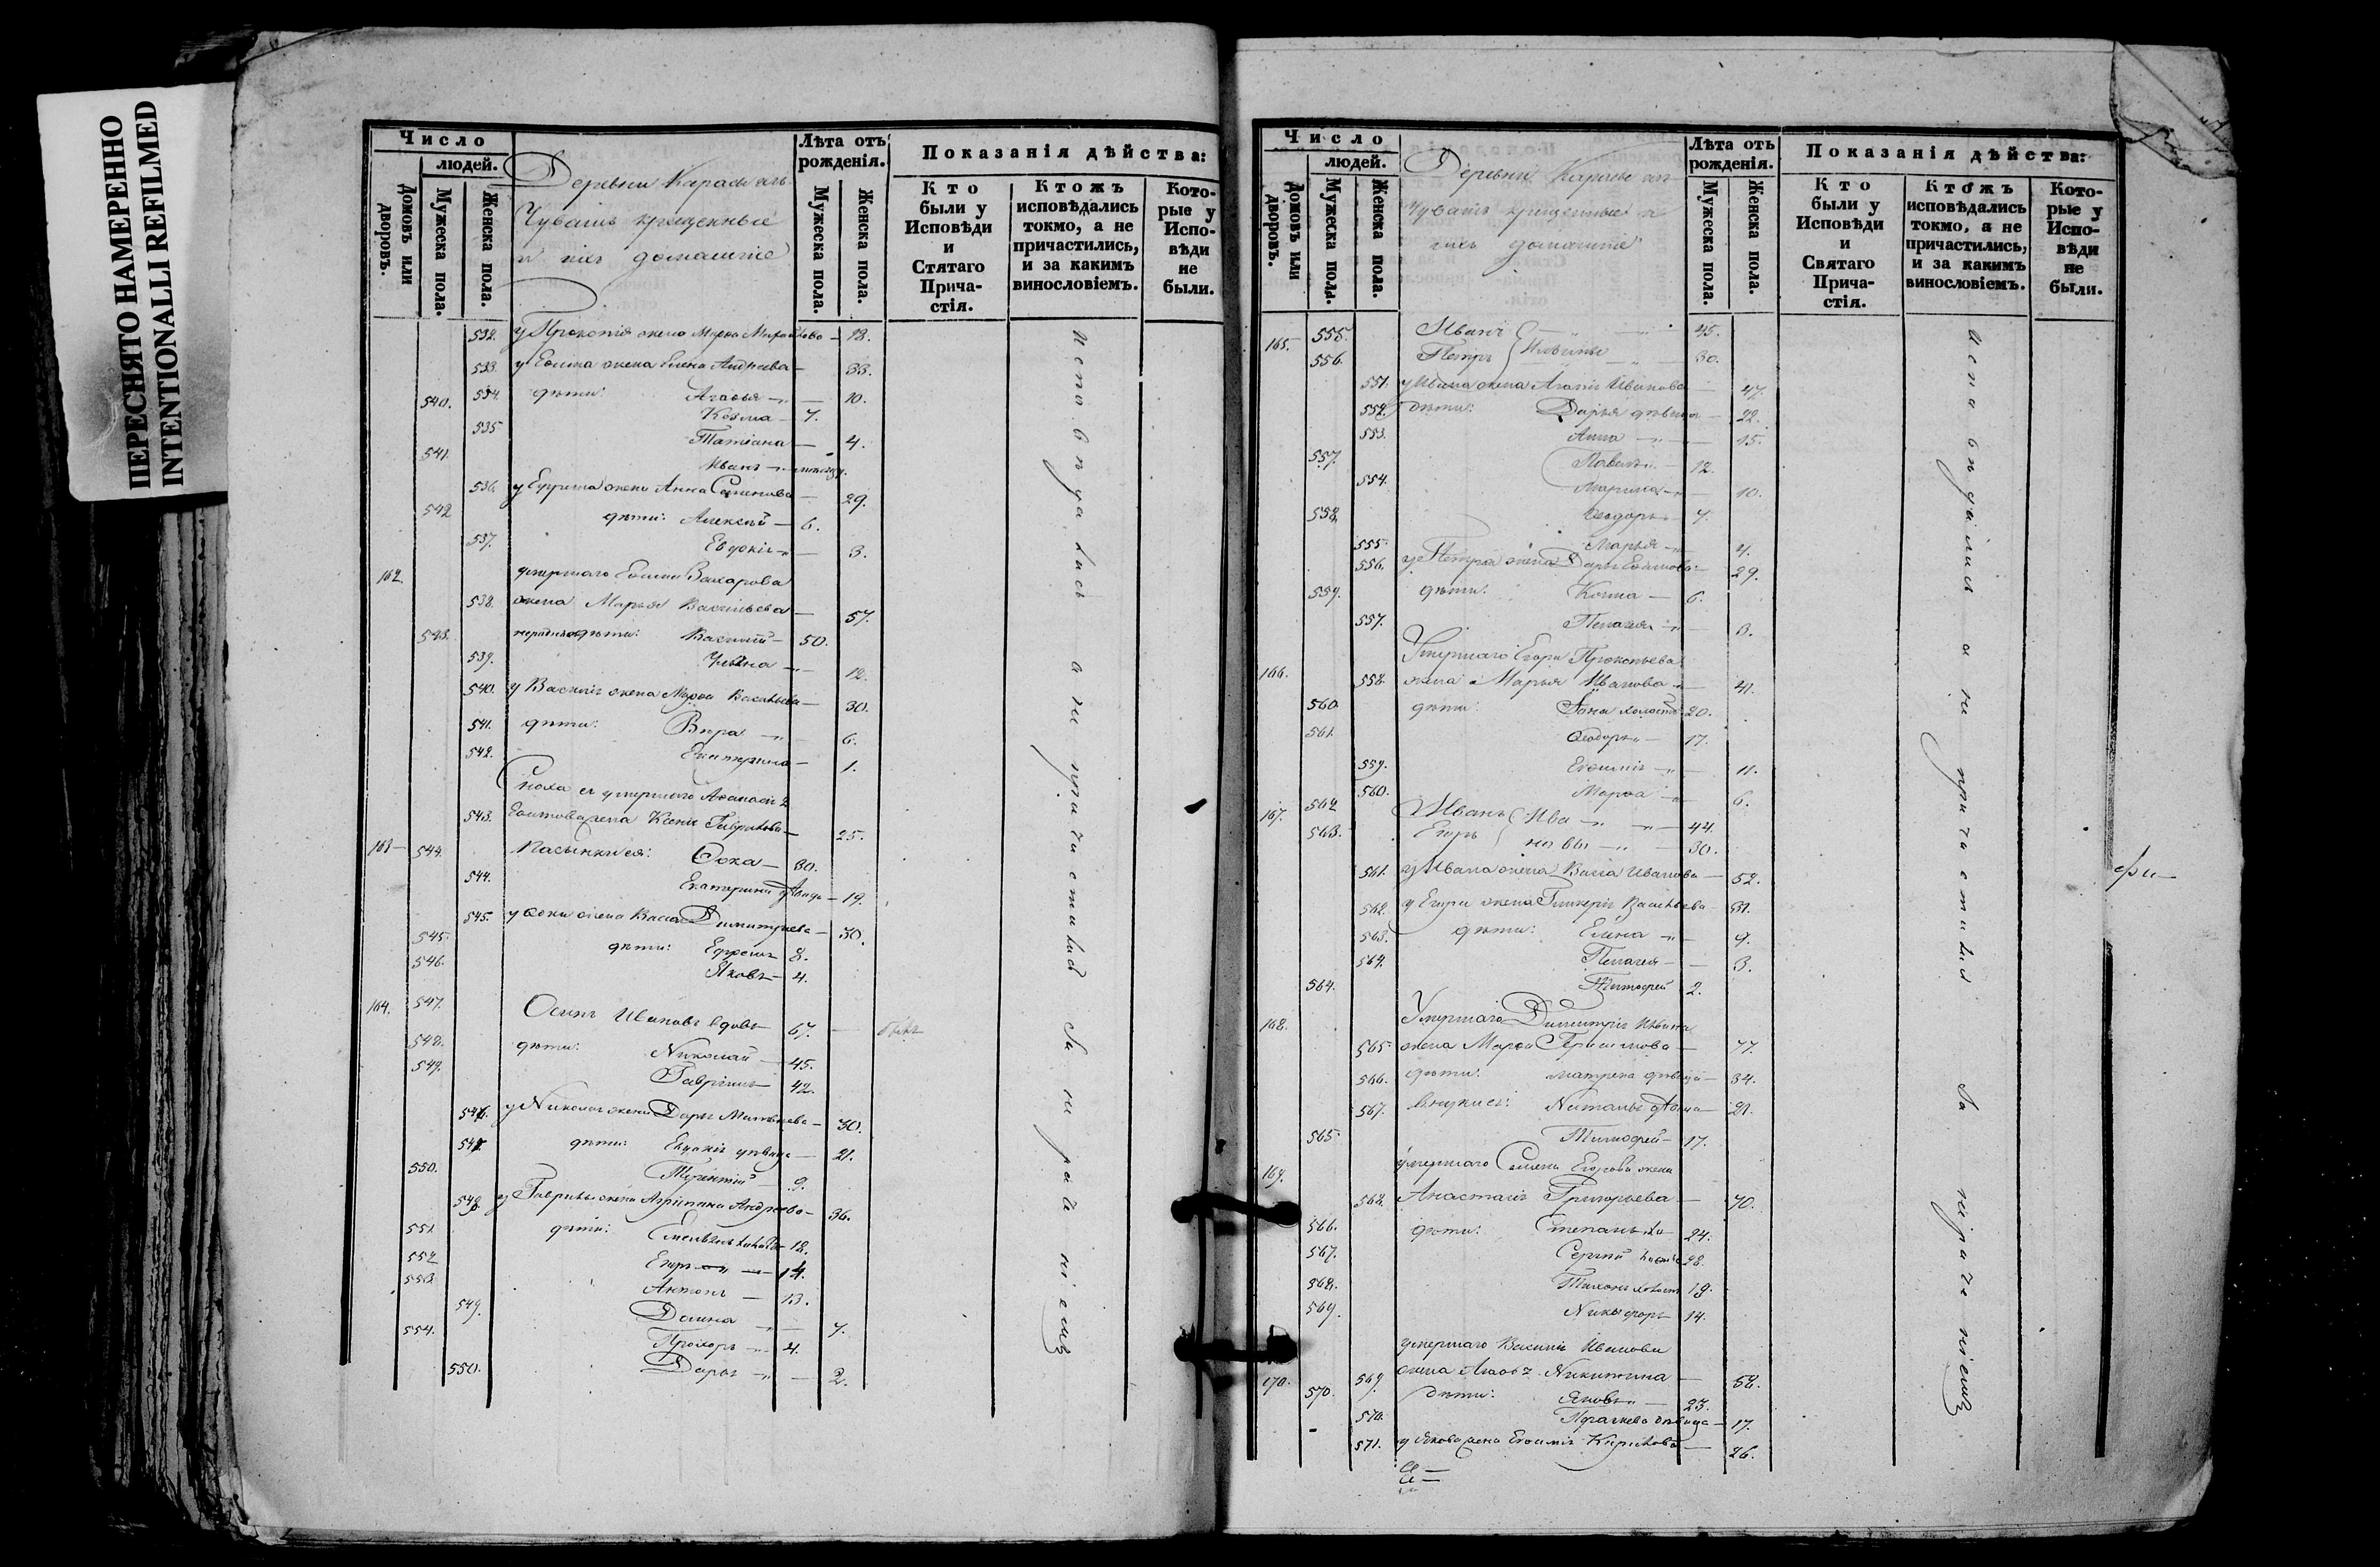 ПЕРЕСНЯТО НАМЕРЕННО
INTENTIONALLI REFILMED
Число
людей.
Домовъ или дворовъ.
Мужеска пола.
Женска пола.
Деревни
Чувашъ крещенные
и ихъ домашніе
Лѣта отъ рожденія.
Мужеска пола.
Женска пола.
Показанія дѣйства:
Кто были у Исповѣди и Стятаго Причастія.
Ктожъ исповѣдались токмо, а не причастились, и за какимъ винословіемъ.
Которые у Исповѣди не были.
532. у Прокопія жена 18.
533. у жена Елена Андреева — 33.
534. дѣти: Агаѳья — 10.
540. Козма — 7.
535 Татіана — 4.
541. Иванъ
536. у Ефрема жена Анна Семенова — 29.
542 дѣти: Алексѣй — 6.
537. Евдокія — 3.
162. умершаго Захарова
538. жена Марья Васильева — 57.
543. дѣти: Василій — 50.
539. 12.
540. у Василія жена Марѳа Васильева — 30.
541. дѣти: Вѣра — 6.
542. Екатерина — 1.
Сноха ея умершаго
543. жена Ксенія Гаврилова — 25.
163 — 544. Пасынки ея: Ѳока — 30.
544. Екатерина — 19.
545. у Ѳоки жена Васса Димитриева — 30.
545. дѣти: Ефремъ 8.
546. Яковъ — 4.
164. 547. Осипъ Ивановъ вдовъ 67. — былъ
548. дѣти: Николай — 45.
549. Гавріилъ 42.
546. у Николая жена Дарья Матвѣева — 30.
547. дѣти: Евдокія дѣвица — 21.
550. Терентій — 9.
548. у Гаврилы жена Агрипина Андреева — 36.
551 дѣти: 18.
552 Егоръ — 14.
553 Антонъ — 13.
549. Домна — 7.
554. Прохоръ — 4.
550. Дарья — 2.
исповѣдались а не причастились за нераченіемъ
Число
людей.
Домовъ или дворовъ.
Мужеска пола.
Женска пола.
Деревни
Чувашъ крещенные и
ихъ домашніе
Лѣта отъ рожденія.
Мужеска пола.
Женска пола.
Показанія дѣйства:
Кто были у Исповѣди и Святаго Причастія.
Ктожъ исповѣдались токмо, а не причастились, и за какимъ винословіемъ.
Которые у Исповѣди не были.
165. 555. Иванъ 45.
556. Петръ Ильины 30.
551. у Ивана жена Иванова — 47.
552. дѣти: Дарья дѣвица — 22.
553. Анна — 15.
557. Павелъ — 12.
554. Марина — 10.
558. Ѳеодоръ 7.
555. Марья — 4.
556. у Петра жена Дарья 29.
559. дѣти: Козма — 6.
557. Пелагея — 3.
Умершаго Егора Прокопьева
166. 558. жена Марья Иванова — 41.
560. дѣти: холостъ 20.
561. Ѳеодоръ — 17.
559. Евфимія — 11.
560. Марѳа — 6.
167. 562 Иванъ Ива — 44.
563. Егоръ новы — 30.
561. у Ивана жена Васса Иванова — 52.
562. у Егора жена Гликерія Васильева — 31.
563. дѣти: Елена — 9.
564. Пелагея — 3.
564. Тимофей 2.
168. Умершаго Димитрія
565. жена Марѳа 77.
566. дѣти: Матрена дѣвица — 34.
567. внуки ея: Наталья 21.
565. Тимофей — 17.
169. умершаго Семена Егорова жена
568. Анастасія Григорьева — 70.
566. дѣти: Степанъ 24.
567. Сергѣй 28.
568. Тихонъ холост 19.
569. Никифоръ 14.
умершаго Василія Иванова
170. 569. жена Агаѳья Никитина — 58.
570. дѣти: Яковъ — 23.
570. дѣвица — 17.
571. у Якова жена Евфимія Кирилова — 26.
исповѣдались а не причастились за нераченіемъ